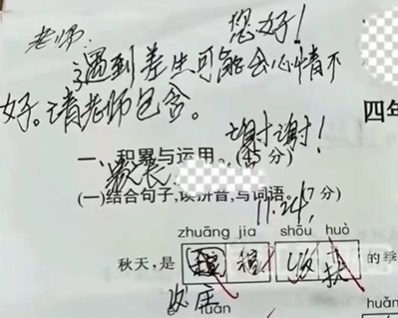 老师：
您好！
遇到差生可能会心情不
好。请老师包含。
谢谢！
四年
一、积累与运用。(45分)
家长
(一)结合句子,读拼音,与词语。(7分)
11.24.
zhuāng jia shōu huò
秋天,是 收 的